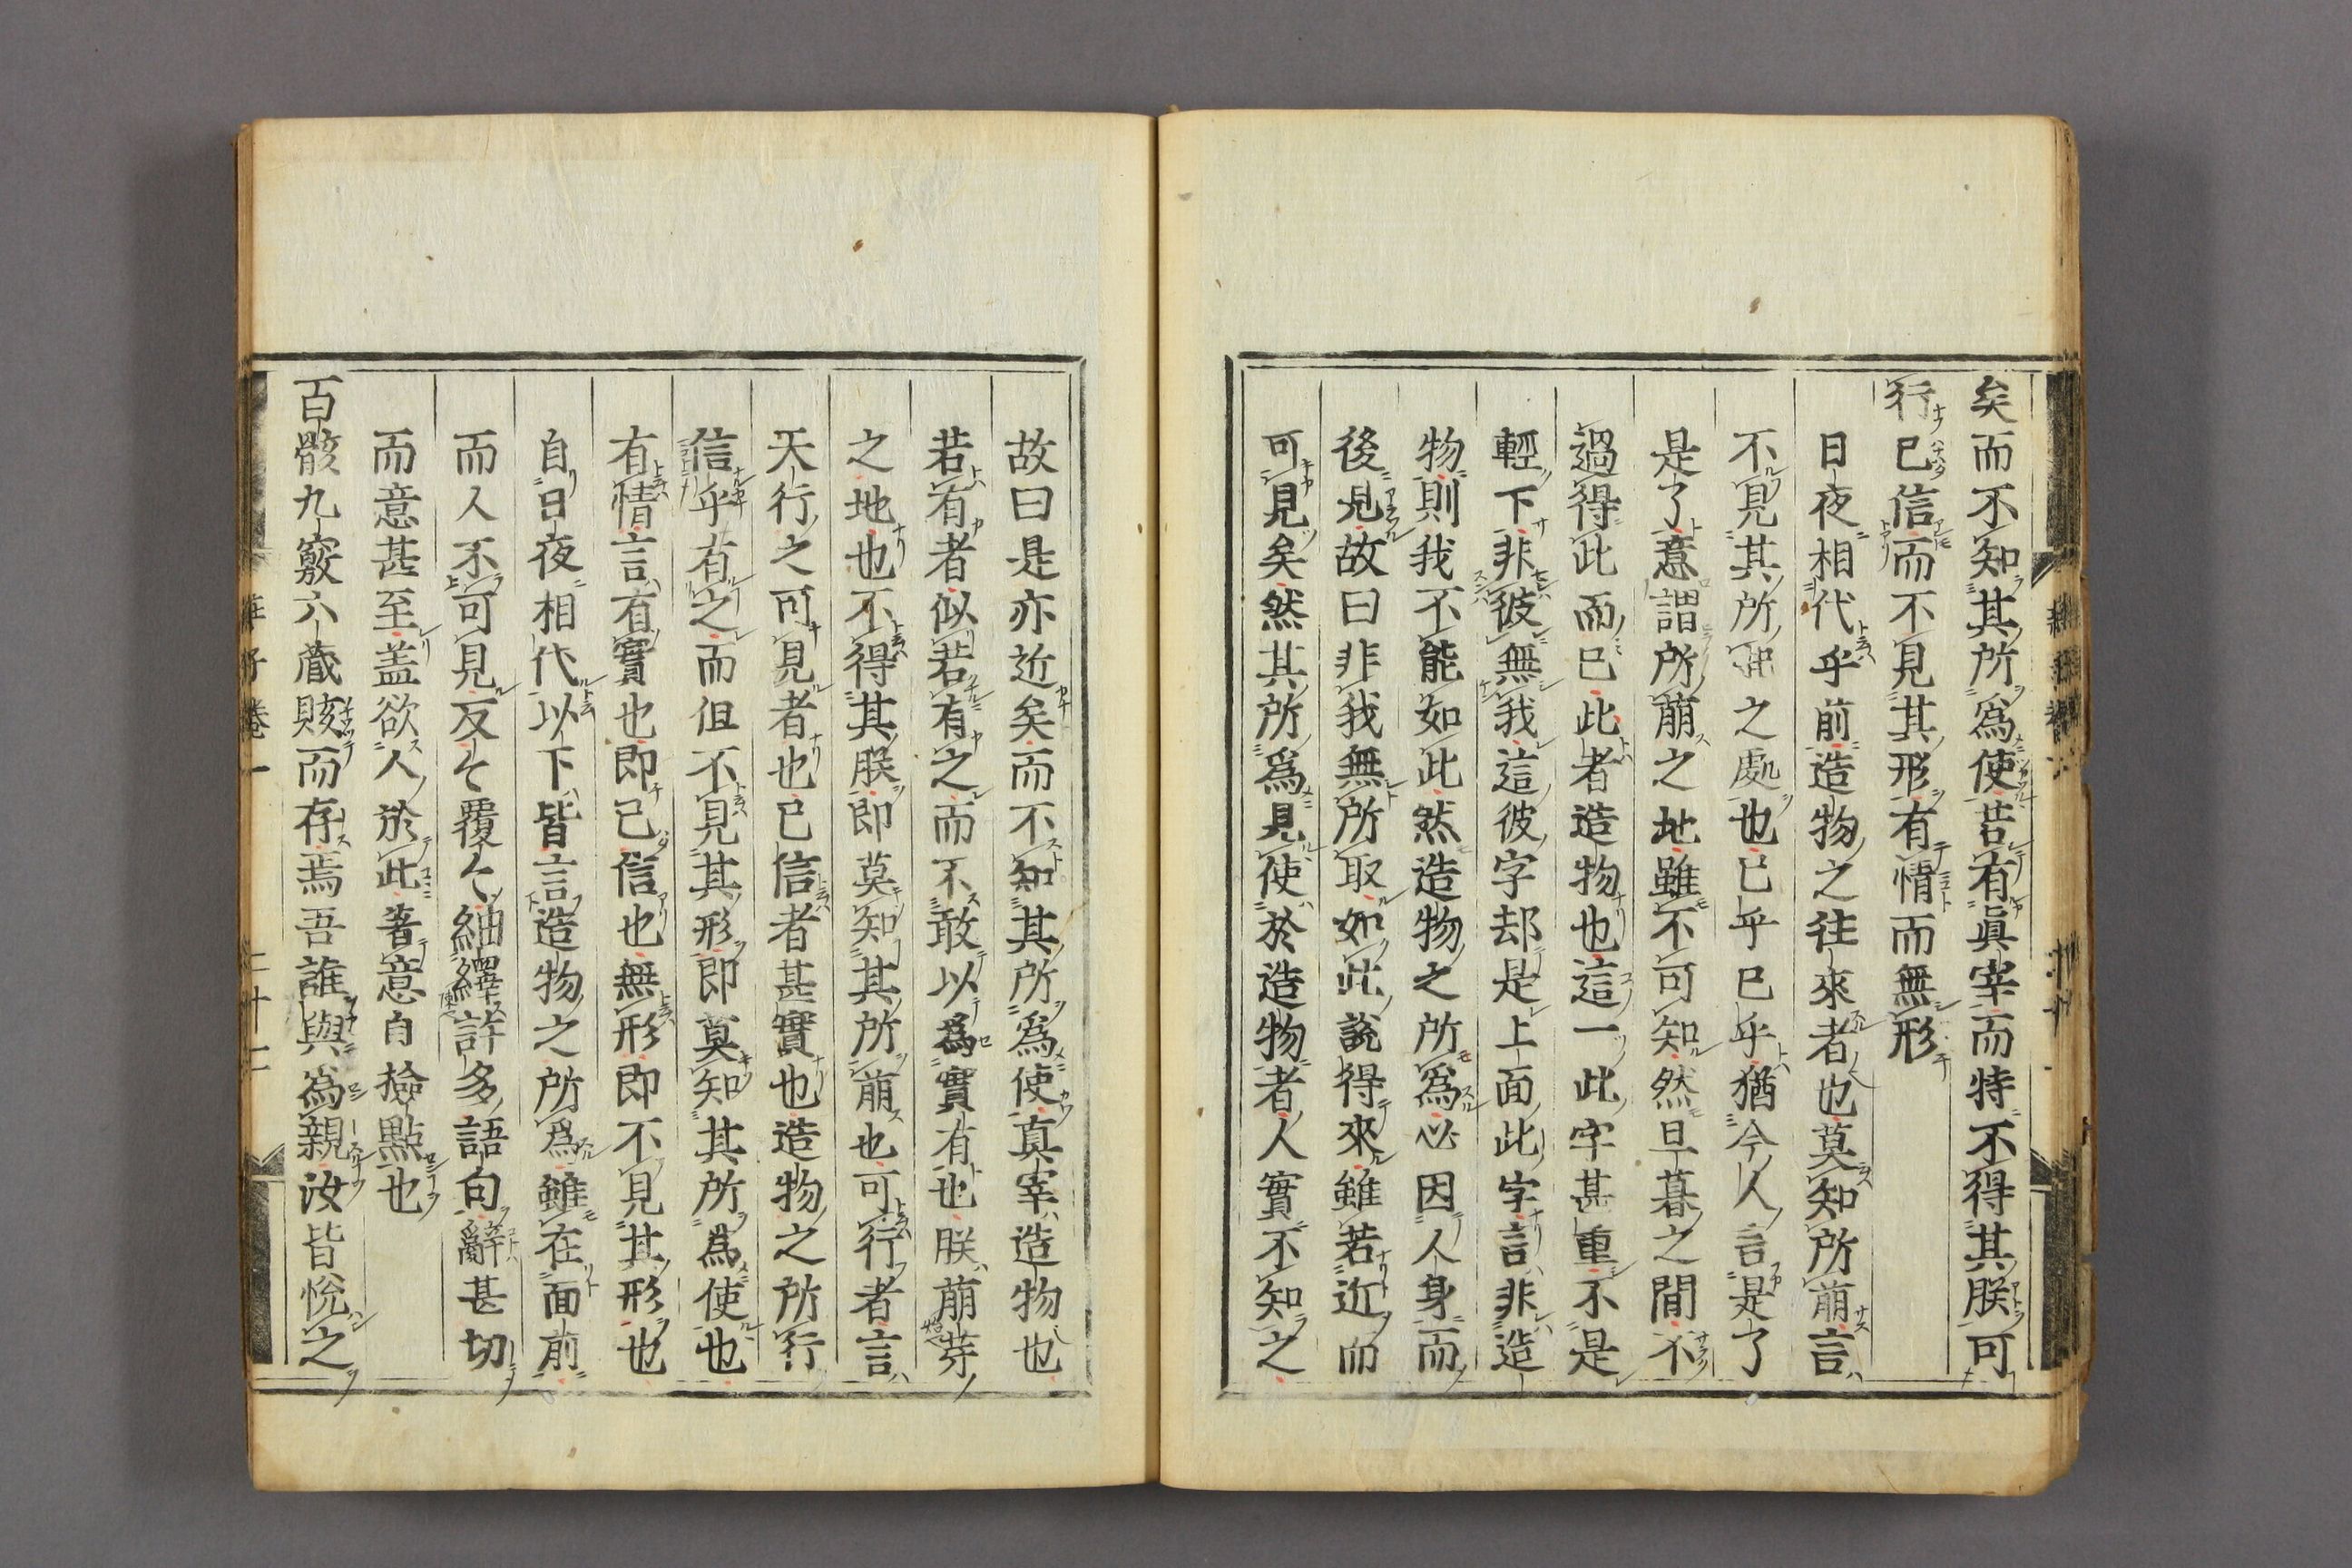 矣而不知其所爲使若有眞宰而特不得其朕可
行已信而不見其形有情而無形
日夜相代乎前造物之往來者也莫知所萠言
不見其所萠之處也已乎已乎猶今人言是了
是了意謂所萠之地雖不可知然旦暮之間不
過得此而已此者造物也這一此字甚重不是
輕下非彼無我這彼字却是上面此字言非造
物則我不能如此然造物之所爲必因人身而
後見故曰非我無所取如此說得來雖若近而
可見矣然其所爲見使於造物者人實不知之
故曰是亦近矣而不知其所爲使真宰造物也
若有者似若有之而不敢以爲實有也朕萠芽
之地也不得其朕即莫知其所萠也可行者言
天行之可見者也已信者甚實也造物之所行
信乎有之而但不見其形即莫知其所爲使也
有情言有實也即已信也無形即不見其形也
自日夜相代以下皆言造物之所爲雖在面前
而人不可見反〻覆〻紬繹許多語句辭甚切
而意甚至盖欲人於此著意自撿點也
百骸九竅六藏賅而存焉吾誰與爲親汝皆悅之
莊子卷一
二十二